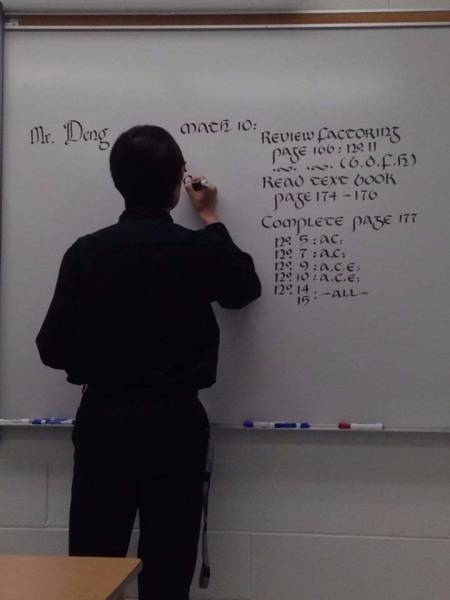 Mr. Deng
Math 10:
Review factoring
page 166: no. 11
(b.d.f.h)
Read text book
page 174-176
Complete page 177
no. 5: a.c;
no. 7: a.c;
no. 9: a.c.e;
no. 10: a.c.e;
no. 14
15: -all-